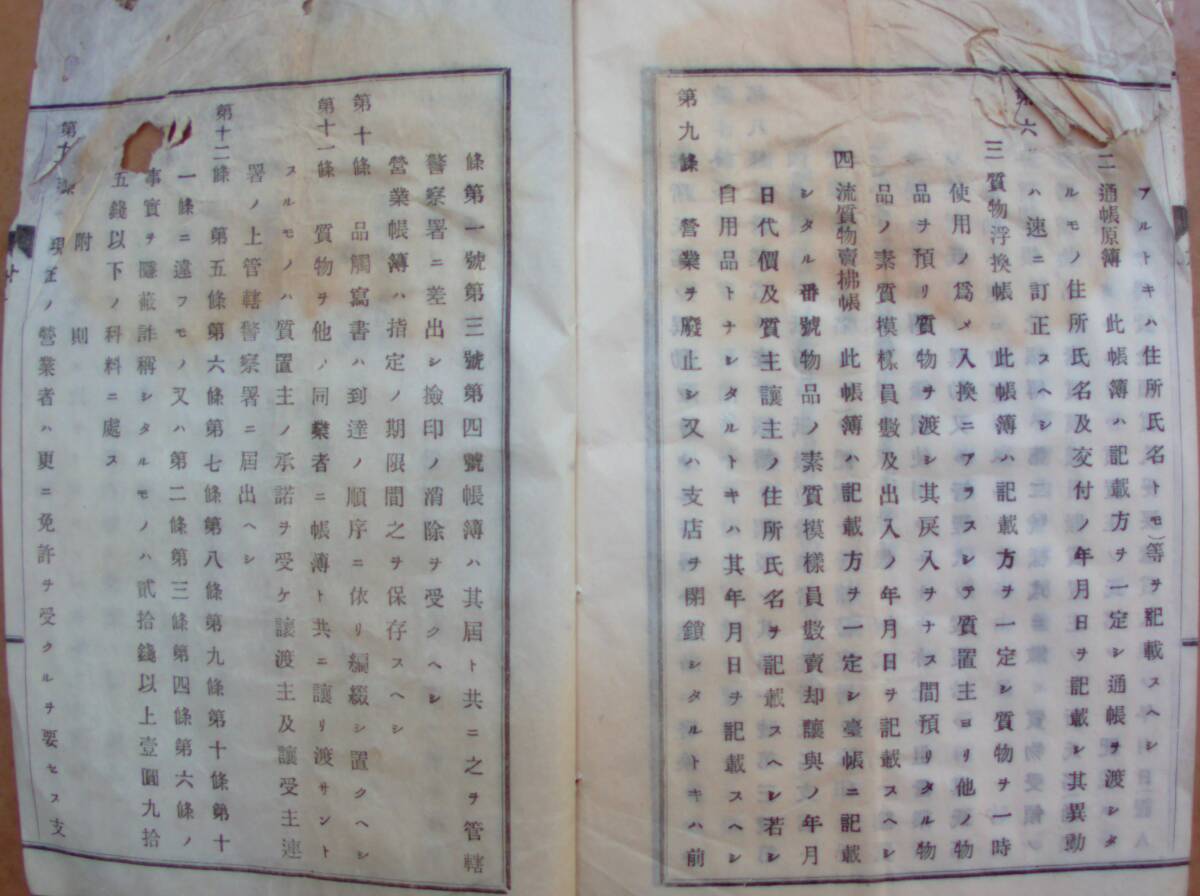 アルトキハ住所氏名トモ)等ヲ記載スヘシ
二 通帳原簿 此帳簿ハ記載方ヲ一定シ通帳ヲ渡シタ
ルモノ住所氏名及交付ノ年月日ヲ記載シ其異動
ハ速ニ訂正スヘシ
三 質物浮換帳 此帳簿ハ記載方ヲ一定シ質物ヲ一時
使用ノ爲メ入換ニアラスシテ質置主ヨリ他ノ物
品ヲ預リ質物ヲ渡シ其戻入ヲナス間預リタル物
品ノ素質摸樣員數及出入ノ年月日ヲ記載スヘシ
四 流質物賣拂帳 此帳簿ハ記載方ヲ一定シ臺帳ニ記載
シタル番號物品ノ素質摸樣員數賣却讓與ノ年月
日代價及質主讓主ノ住所氏名ヲ記載スヘシ若シ
自用品トナシタルトキハ其年月日ヲ記載スヘシ
第九條 營業ヲ廢止シ又ハ支店ヲ閉鎖シタルトキハ前
條第一號第三號第四號帳簿ハ其届ト共ニ之ヲ管轄
警察署ニ差出シ撿印ノ消除ヲ受クヘシ
營業帳簿ハ指定ノ期限間之ヲ保存スヘシ
第十條 品觸寫書ハ到達ノ順序ニ依リ編綴シ置クヘシ
第十一條 質物ヲ他ノ同業者ニ帳簿ト共ニ讓リ渡サント
スルモノハ質置主ノ承諾ヲ受ケ讓渡主及讓受主連
署ノ上管轄警察署ニ届出ヘシ
第十二條 第五條第六條第七條第八條第九條第十條第十
一條ニ違フモノ又ハ第二條第三條第四條第六條ノ
事實ヲ隱蔽詐稱シタルモノハ貳拾錢以上壹圓九拾
五錢以下ノ科料ニ處ス
附則
第十 條 現在ノ營業者ハ更ニ免許ヲ受クルヲ要セス支